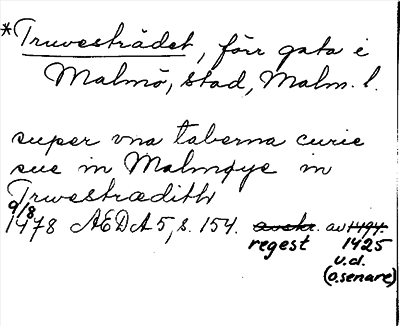 *Truvesträdet, förr gata i
Malmö, stad, Malm. l.
super vna taberna curie
sue in Malmøye in
Truvestrædith
9/8
1478 AEDA 5, s. 154. avskr. av 1494.
regest 1425
u.d.
(o. senare)